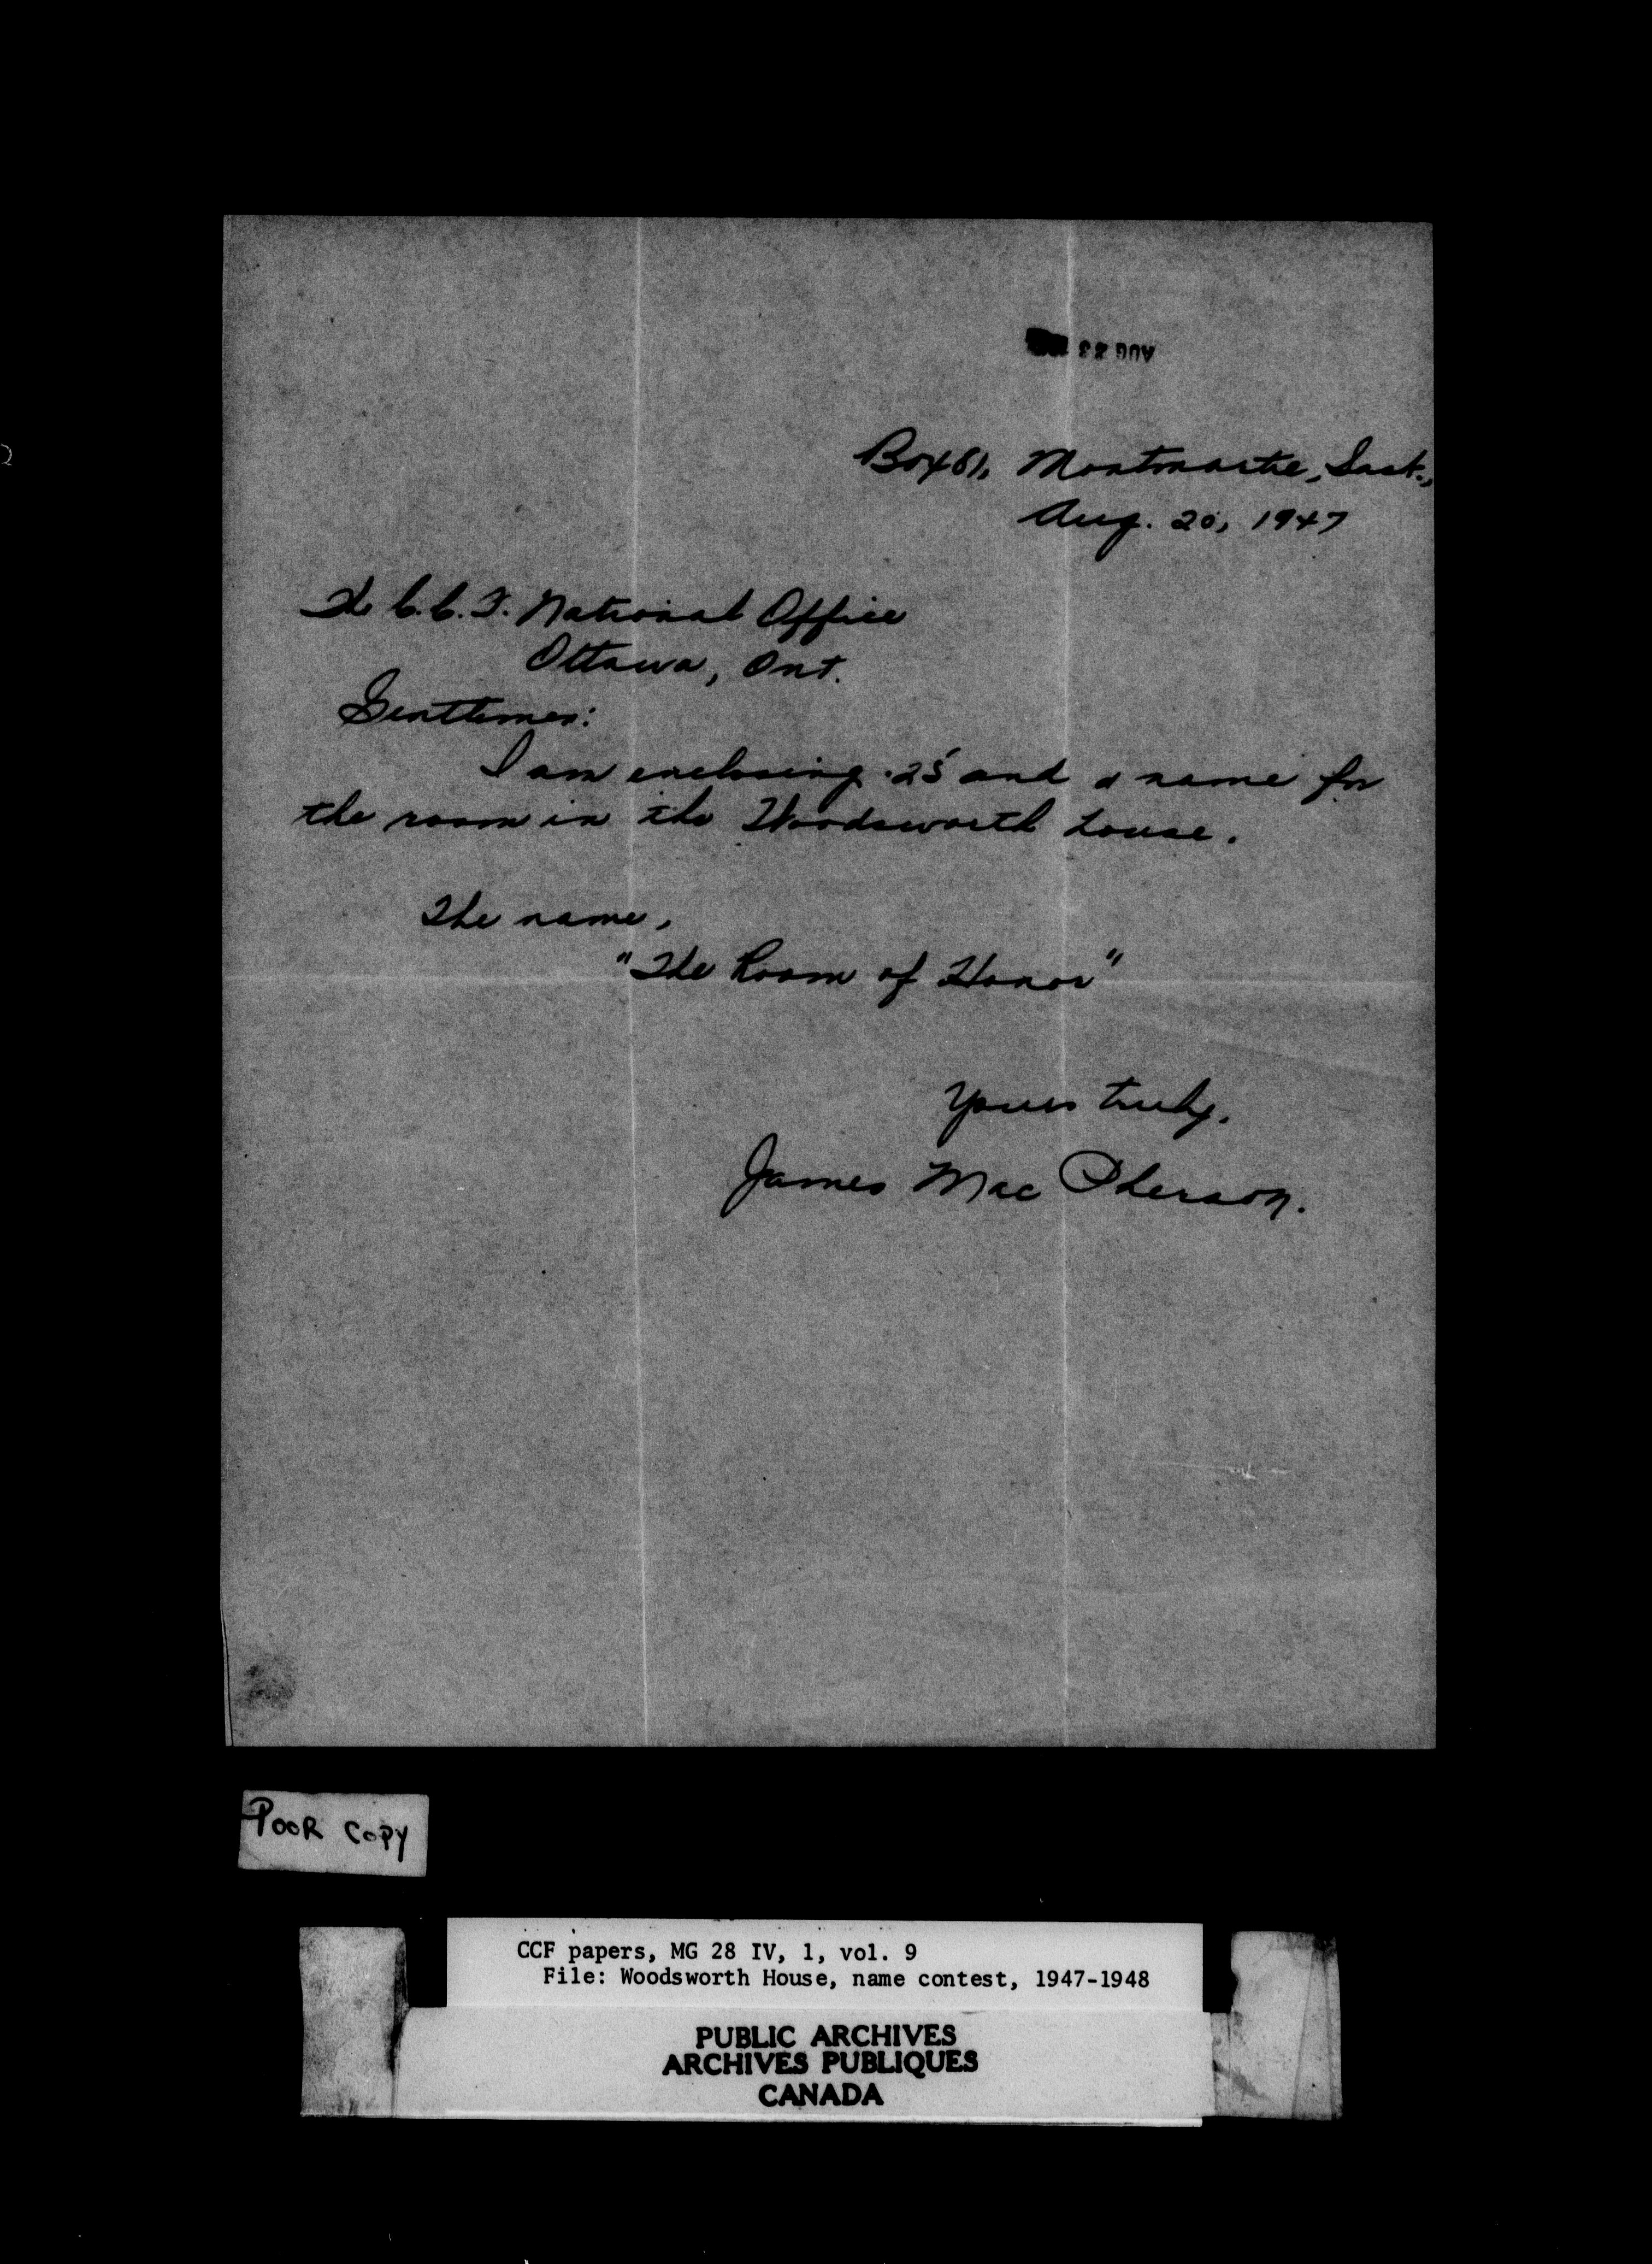 AUG 23
Box 81, Montmartre, Sask.,
Aug. 20, 1947
The C.C.F. National Office
Ottawa, Ont.
Gentlemen:
I am enclosing .25 and a name for
the room in the Woodsworth House.
The name,
"The Room of Honor"
Yours truly,
James Mac Pherson.
POOR COPY
CCF papers, MG 28 IV, 1, vol. 9
File: Woodsworth House, name contest, 1947-1948
PUBLIC ARCHIVES
ARCHIVES PUBLIQUES
CANADA